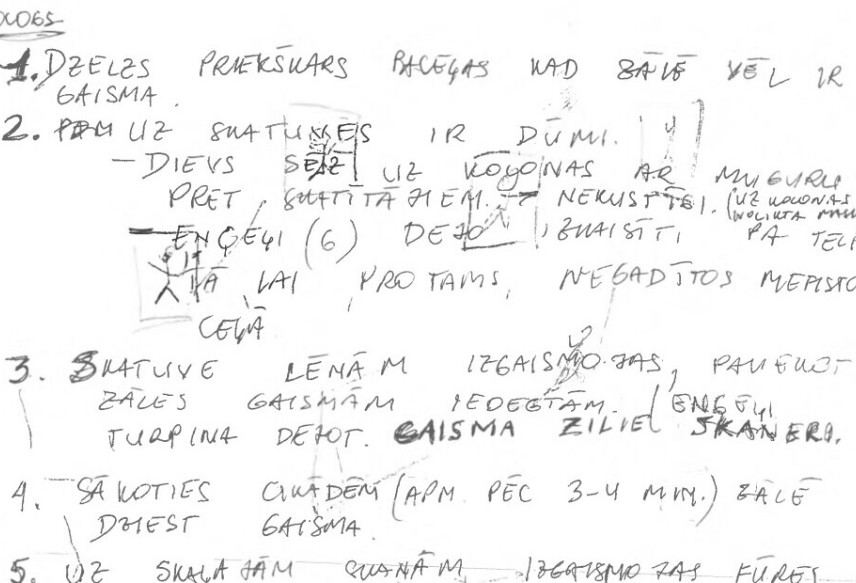 OLOGS
1. DZELZS PRIEKŠKARS PACEĻAS KAD ZĀLĒ VĒL IR
GAISMA.
2. UZ SKATUVES IR DŪMI.
– DIEVS SĒŽ UZ KOĻONAS AR MUGURU
PRET SKATĪTĀJIEM. – NEKUSTĪGI. (UZ KOLONAS
NOLIKTA
– EŅĢEĻI (6) DEJO IZKAISĪTI PA TELP
TĀ LAI, PROTAMS, NEGADĪTOS MEFISTO
CEĻĀ
3. SKATUVE LĒNĀM IZGAISMOJAS, PALIEKOT
ZĀLES GAISMĀM IEDEGTĀM. EŅĢEĻI
TURPINA DEJOT. GAISMA ZILIE SKANERI.
4. SĀKOTIES CIKĀDĒM (APM. PĒC 3-4 MIN.) ZĀLĒ
DZIEST GAISMA.
5. UZ SKAĻAJĀM SKAŅĀM IZGAISMOJAS FŪRES